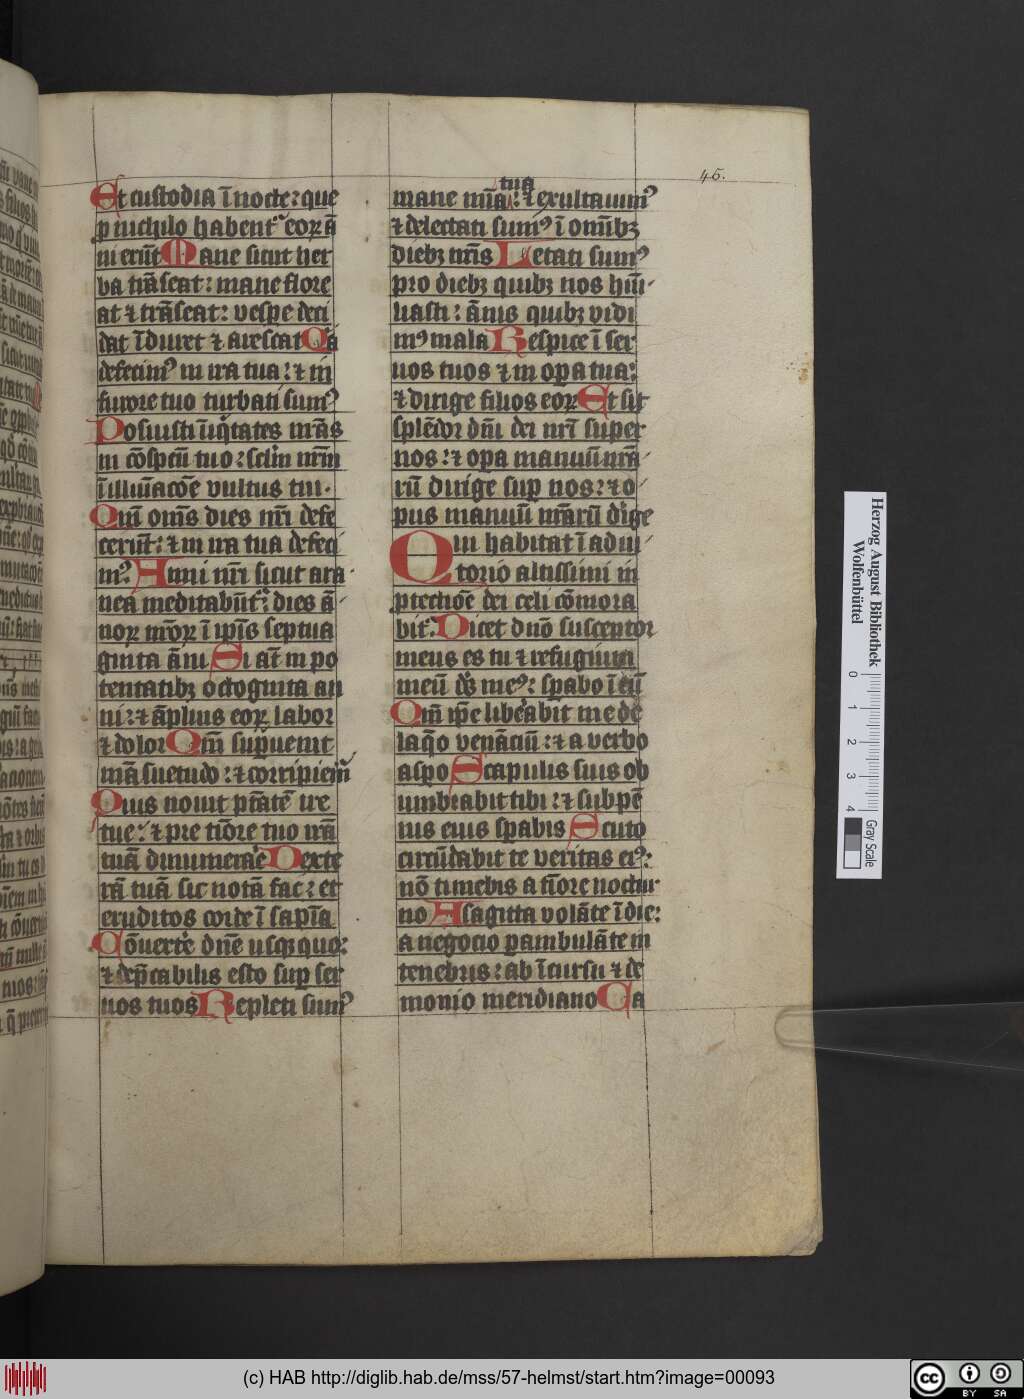 45.
Et custodia ī nocte: que
ꝓ nichilo habent᷑ eoꝝ ā
ni erūt Mane sicut her
ba trāseat: mane flore
at ⁊ trāseat: vespe deci
dat īduret ⁊ arescat Qa
defecimꝰ in ira tua: ⁊ in
furore tuo turbati sumꝰ
Posuisti īiq̇tates nrās
in cōspcū tuo: sclm nrm̄
ī illuīacōe vultus tui.
Qm̄ om̄s dies nr̄i defe
cerūt: ⁊ in ira tua defeci
mꝰ Anni nr̄i sicut ara
nea meditabūt᷑: dies ā
noꝝ nr̄oꝝ ī ip̄is septua
ginta āni Si at̄ in po
tentatibꝫ octoginta an
ni: ⁊ āplius eoꝝ labor
⁊ dolor Qm̄ suꝑuenit
māsuetudo: ⁊ corripiem᷑
Quis nouit ptātē ire
tue: ⁊ pre timore tuo irā
tuā dinumerare Dexte
rā tuā sic notā fac: et
eruditos corde ī sapīa
Cōuerte dn̄e usqꝫquo:
⁊ dep̄cabilis esto suꝑ ser
uos tuos Repleti sumꝰ
tua
mane mīa: ⁊ exultauimꝰ
⁊ delectati sumꝰ ī om̄ibꝫ
diebꝫ nr̄is Letati sumꝰ
pro diebꝫ quibꝫ nos hūi
liasti: ānis quibꝫ vidi
mꝰ mala Respice ī ser
uos tuos ⁊ in oꝑa tua:
⁊ dirige filios eoꝝ Et sit
splēdor dn̄i dei nr̄i super
nos: ⁊ oꝑa manuū nr̄a
rū dirige suꝑ nos: ⁊ o
pus manuū nr̄arū dirige
Qui habitat ī adiu
torio altissimi in
ꝓtectiōe dei celi cōmora
bit᷑ Dicet dnō susceptor
meus es tu ⁊ refugium
meū dꝰs meꝰ: sꝑabo ī eū
Qm̄ ip̄e liberabit me de
laq̄o venāciū: ⁊ a verbo
aspo Scapulis suis ob
umbrabit tibi: ⁊ sub pē
nis eius sꝑabis Scuto
circūdabit te veritas eiꝰ:
nō timebis a tīore noctur
no A sagitta volāte ī die:
a negocio ꝑambulāte in
tenebris: ab īcursu ⁊ de
monio meridiano Ca
Herzog August Bibliothek
Wolfenbüttel
0 1 2 3 4
Gray Scale
(c) HAB http://diglib.hab.de/mss/57-helmst/start.htm?image=00093
cc BY SA